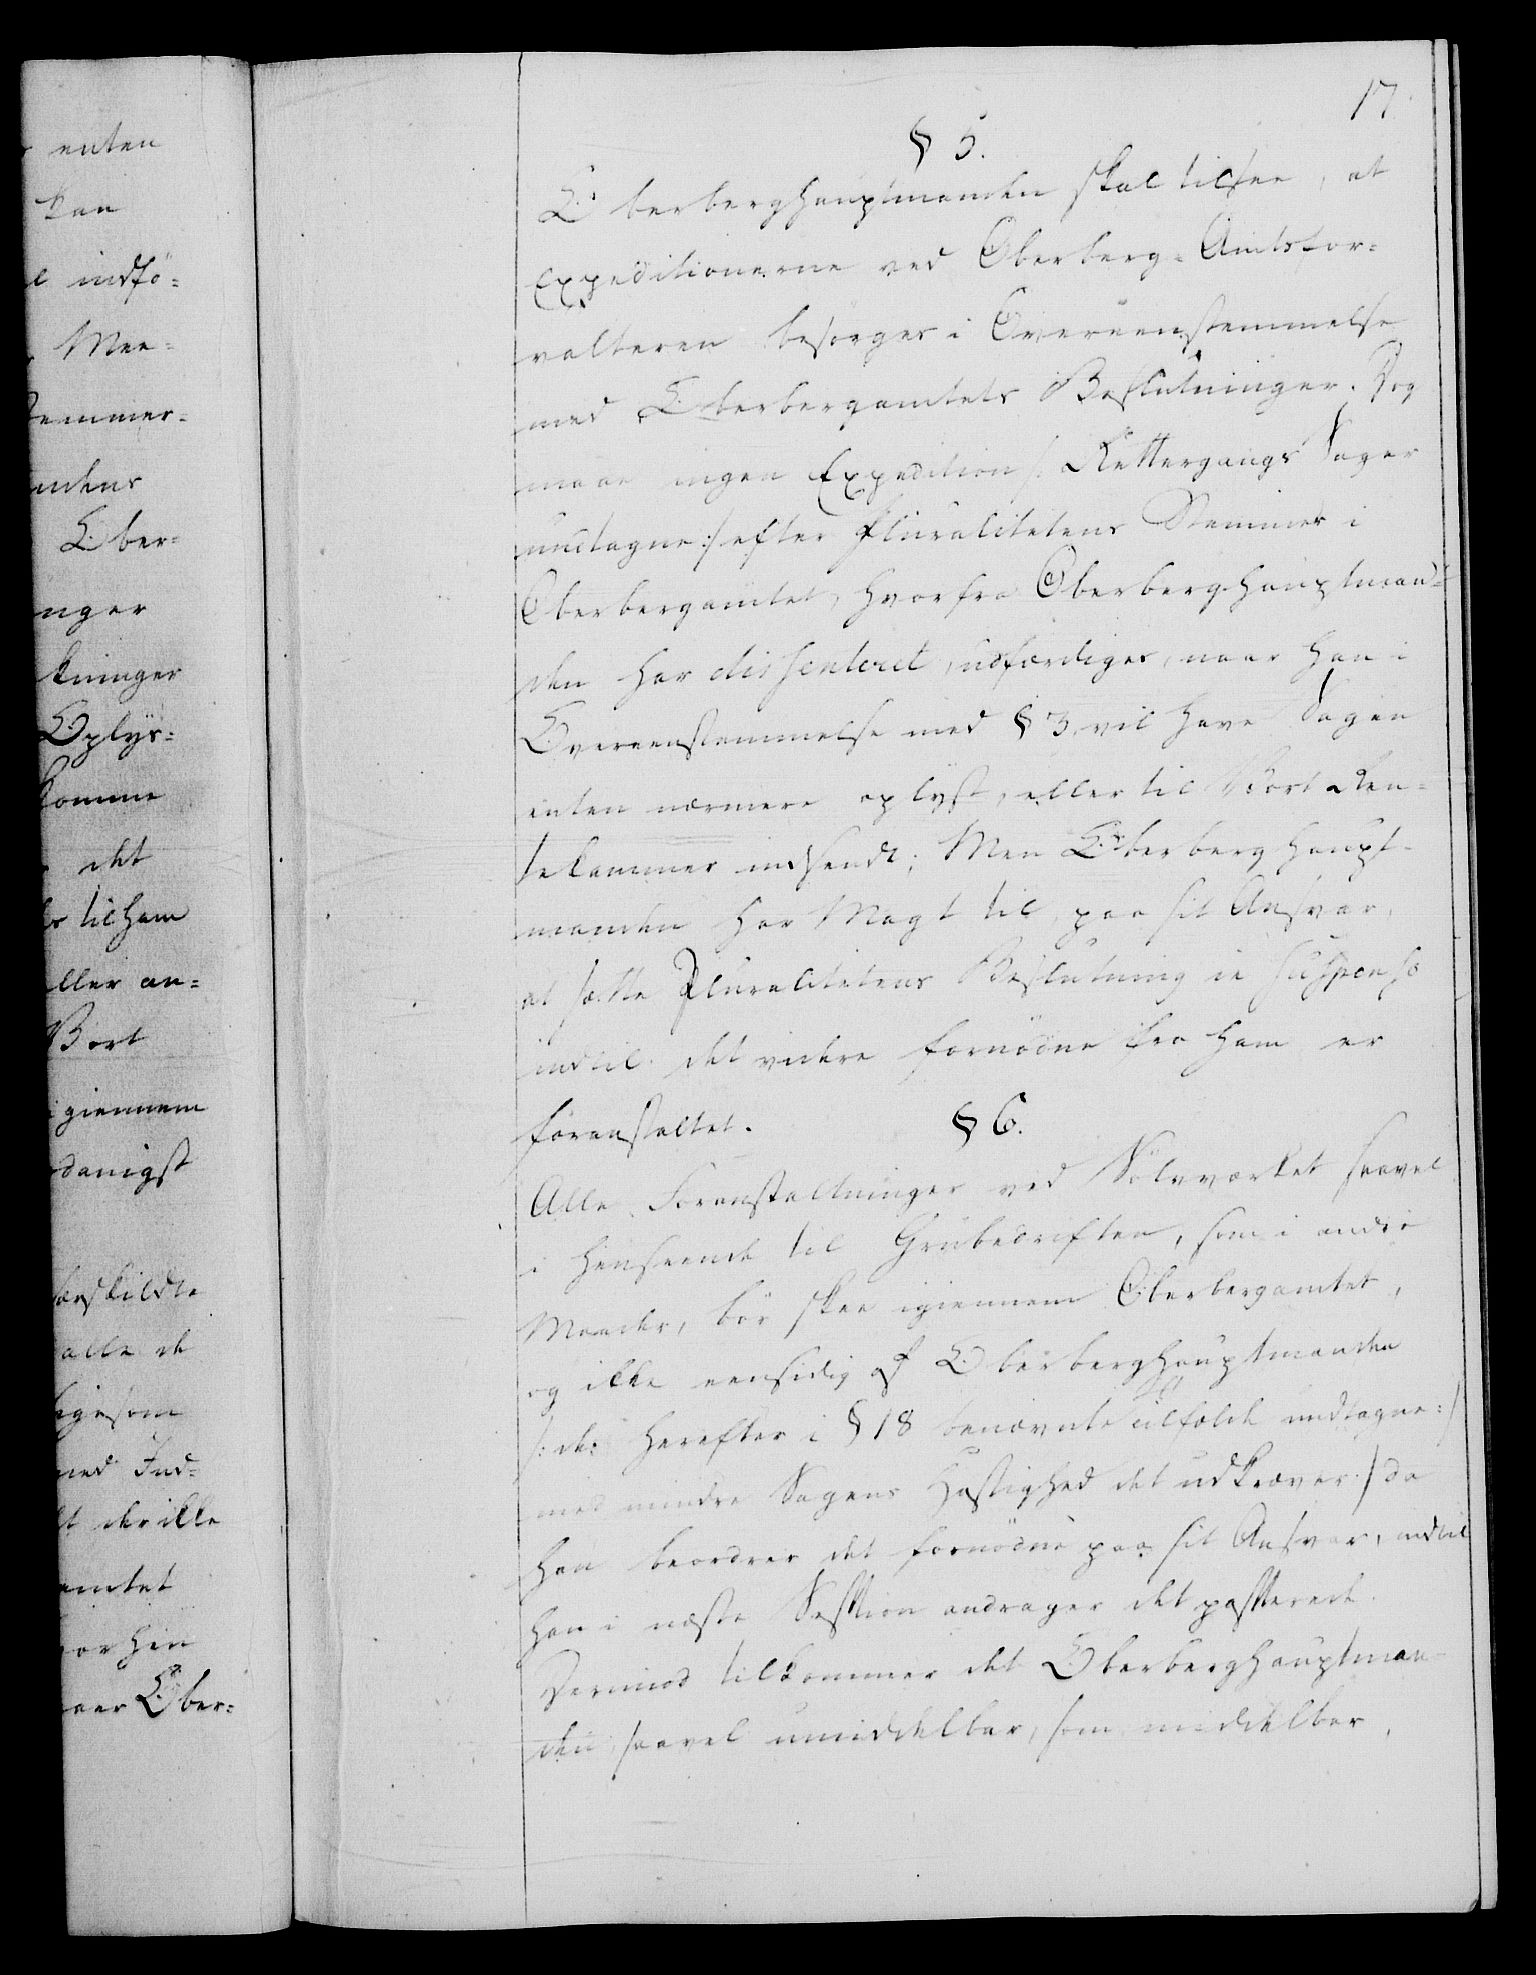 enten
kan
indfö-
Mee-
kommer-
ndens
Ober-
nger
kninger
Oplys-
komme
det
til ham
ller an-
Bort
igiennem
danigst
særskildte
alle de
ligesom
med Ind-
der ikke
amtet
for hen
Ober-
17
§ 5.
Oberberghauptmanden skal tilsee, at
Expeditionerne ved Oberberg-Amtsfor-
valteren besörges i Overeensstemmelse
med Oberbergamtets Beslutninger. Dog
maae ingen Expedition /: Rettergangs Sager
undtagne :/ efter Pluralitetens Stemmer i
Oberbergamtet, hvorfra Oberberghauptman-
den har dissenteret, udfærdiges, naar han i
Overeensstemmelse med § 3, vil have Sagen
enten nærmere oplyst, eller til Vort Ren-
tekammer indsendt; Men Oberberghaupt-
manden har Magt til, paa sit Ansvar,
at sætte Pluralitetens Beslutning in suspenso
indtil det videre fornödne fra ham er
foranstaltet.
§ 6.
Alle Foranstaltninger ved Sölvværket saavel
i Henseende til Grubedriften, som i andre
Maader, bör skee igiennem Oberbergamtet,
og ikke eensidig af Oberberghauptmanden
/: de herefter i § 18 benævnte Tilfælde undtagne :/
med mindre Sagens Hastighed det udkræver / da
han beordrer det fornödne paa sit Ansvar, indtil
han i næste Session andrager det passerede.
Derimod tilkommer det Oberberghauptman-
den, saavel umiddelbar, som middelbar,